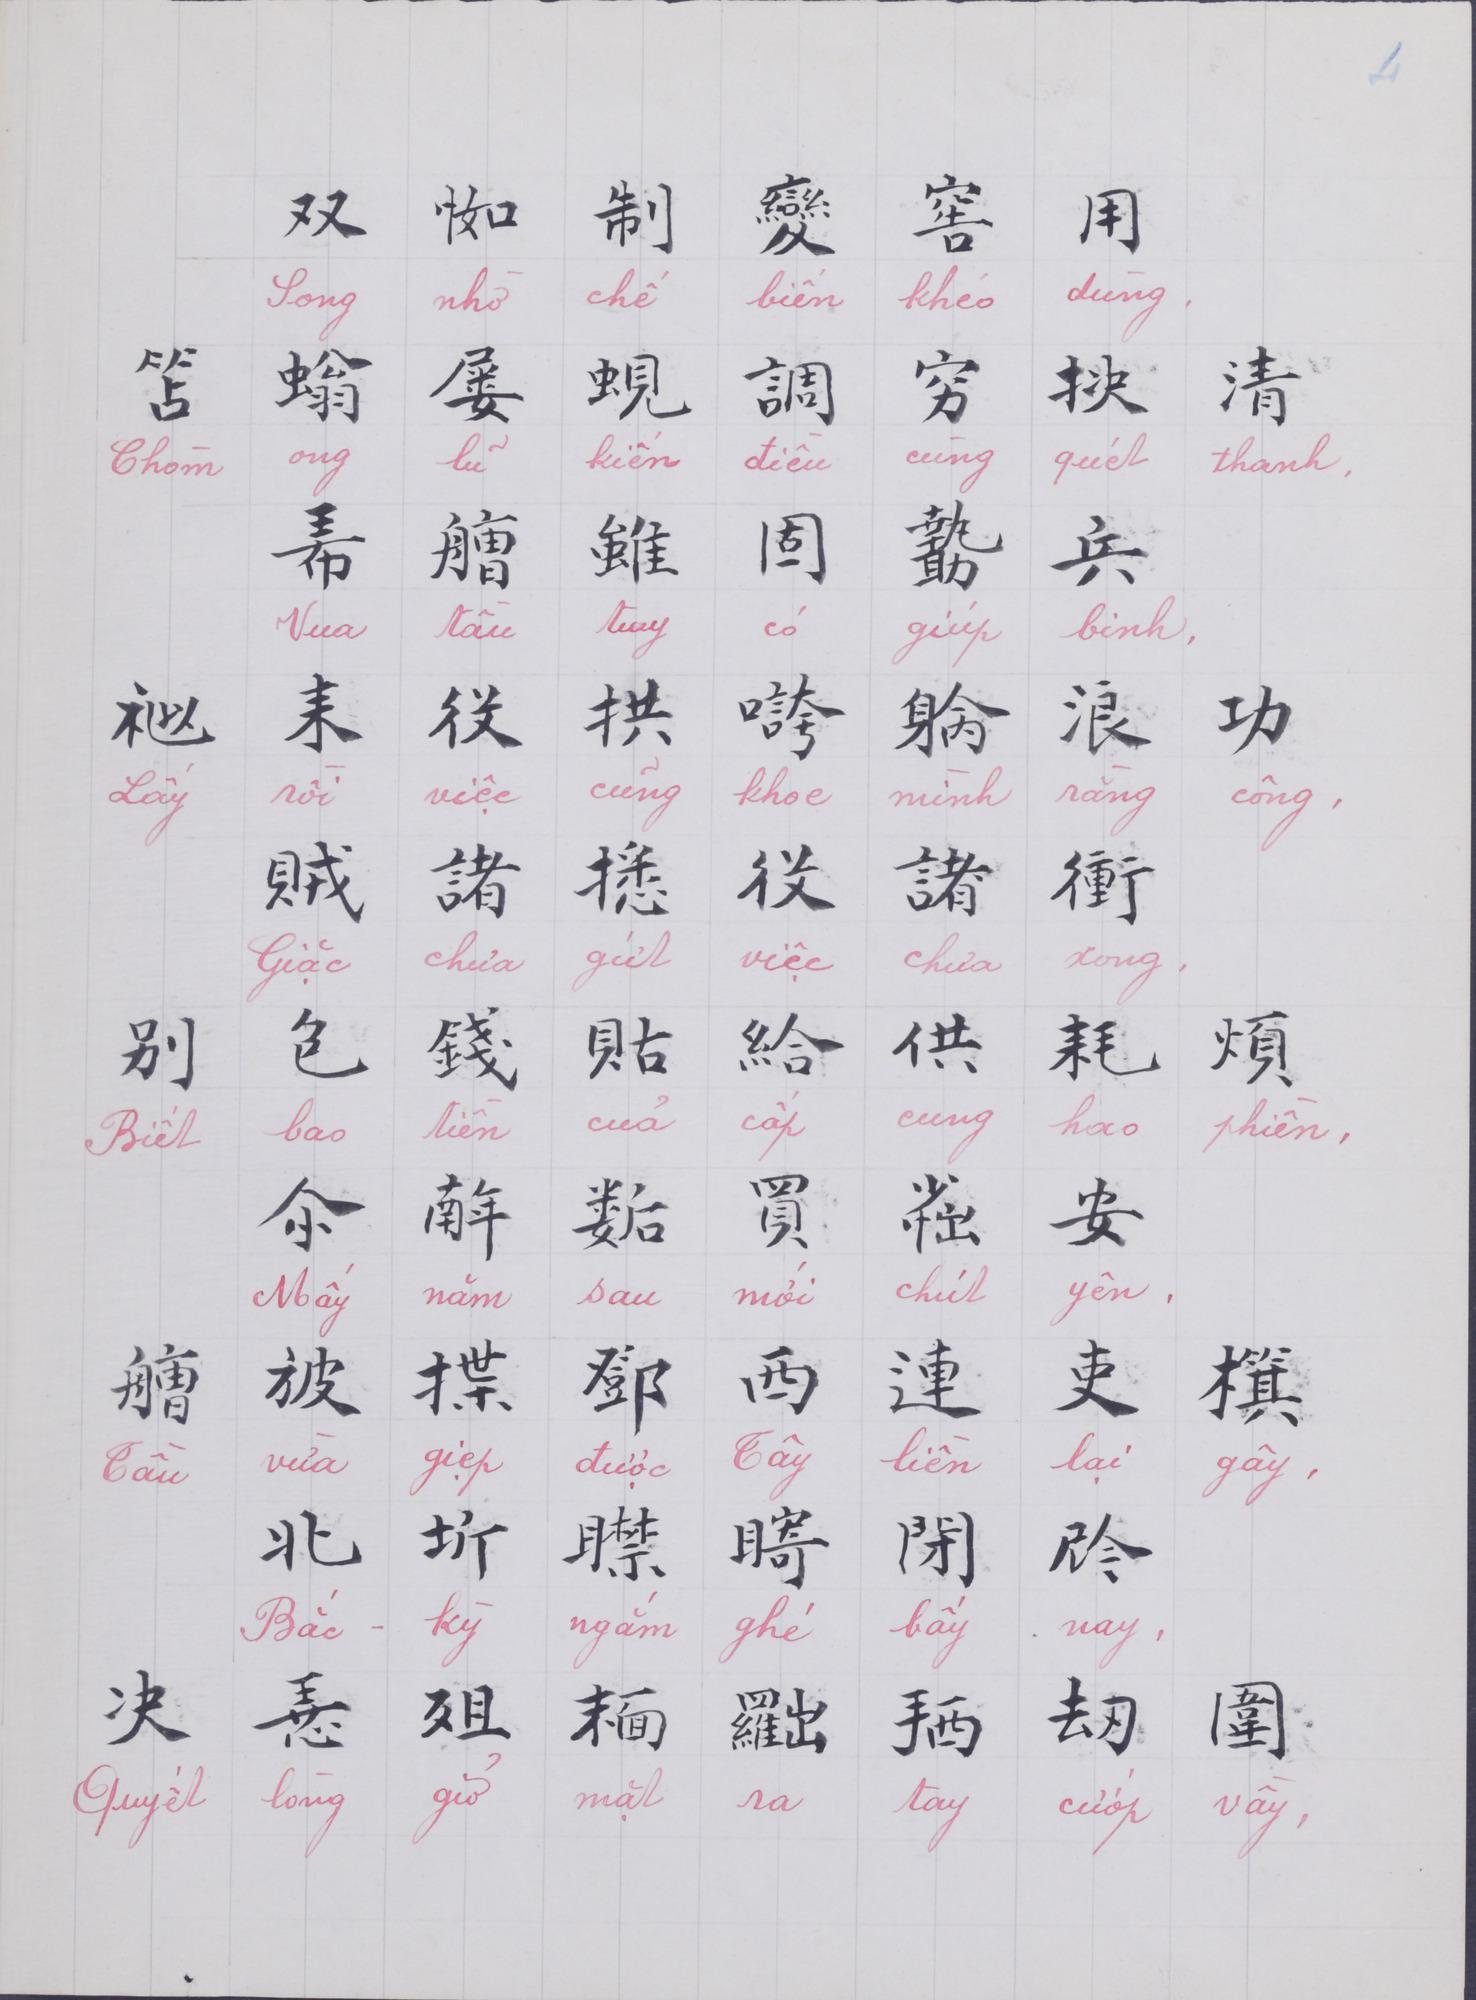 4
双 𢗼 制 變 窖 用
Song nhờ chế biến khéo dùng,
笘 螉 屢 蜆 調 穷 抉 清
Chòm ong lũ kiến điều cùng quét thanh,
𢂜 艚 雖 固 𠢞 兵
Vua tầu tuy có giúp binh,
𥙩 耒 役 拱 誇 躺 浪 功
Lấy rồi việc cũng khoe mình rằng công,
賊 諸 𢮀 役 諸 衝
Giặc chưa gứt việc chưa xong,
别 包 錢 貼 給 供 耗 煩
Biết bao tiền cuả cấp cung hao phiền,
尒 𢆥 𡢐 買 𡮒 安
Mấy năm sau mới chút yên,
艚 𣃣 揲 鄧 西 連 吏 𢲧
Tầu vừa giẹp được Tây liền lại gây,
北 圻 䁮 䁶 閉 𫢩
Bắc - kỳ ngắm ghé bấy nay,
决 𢚸 𣌒 𩈘 𦋦 𢬣 刧 圍
Quyết lòng giở mặt ra tay cướp vầy,